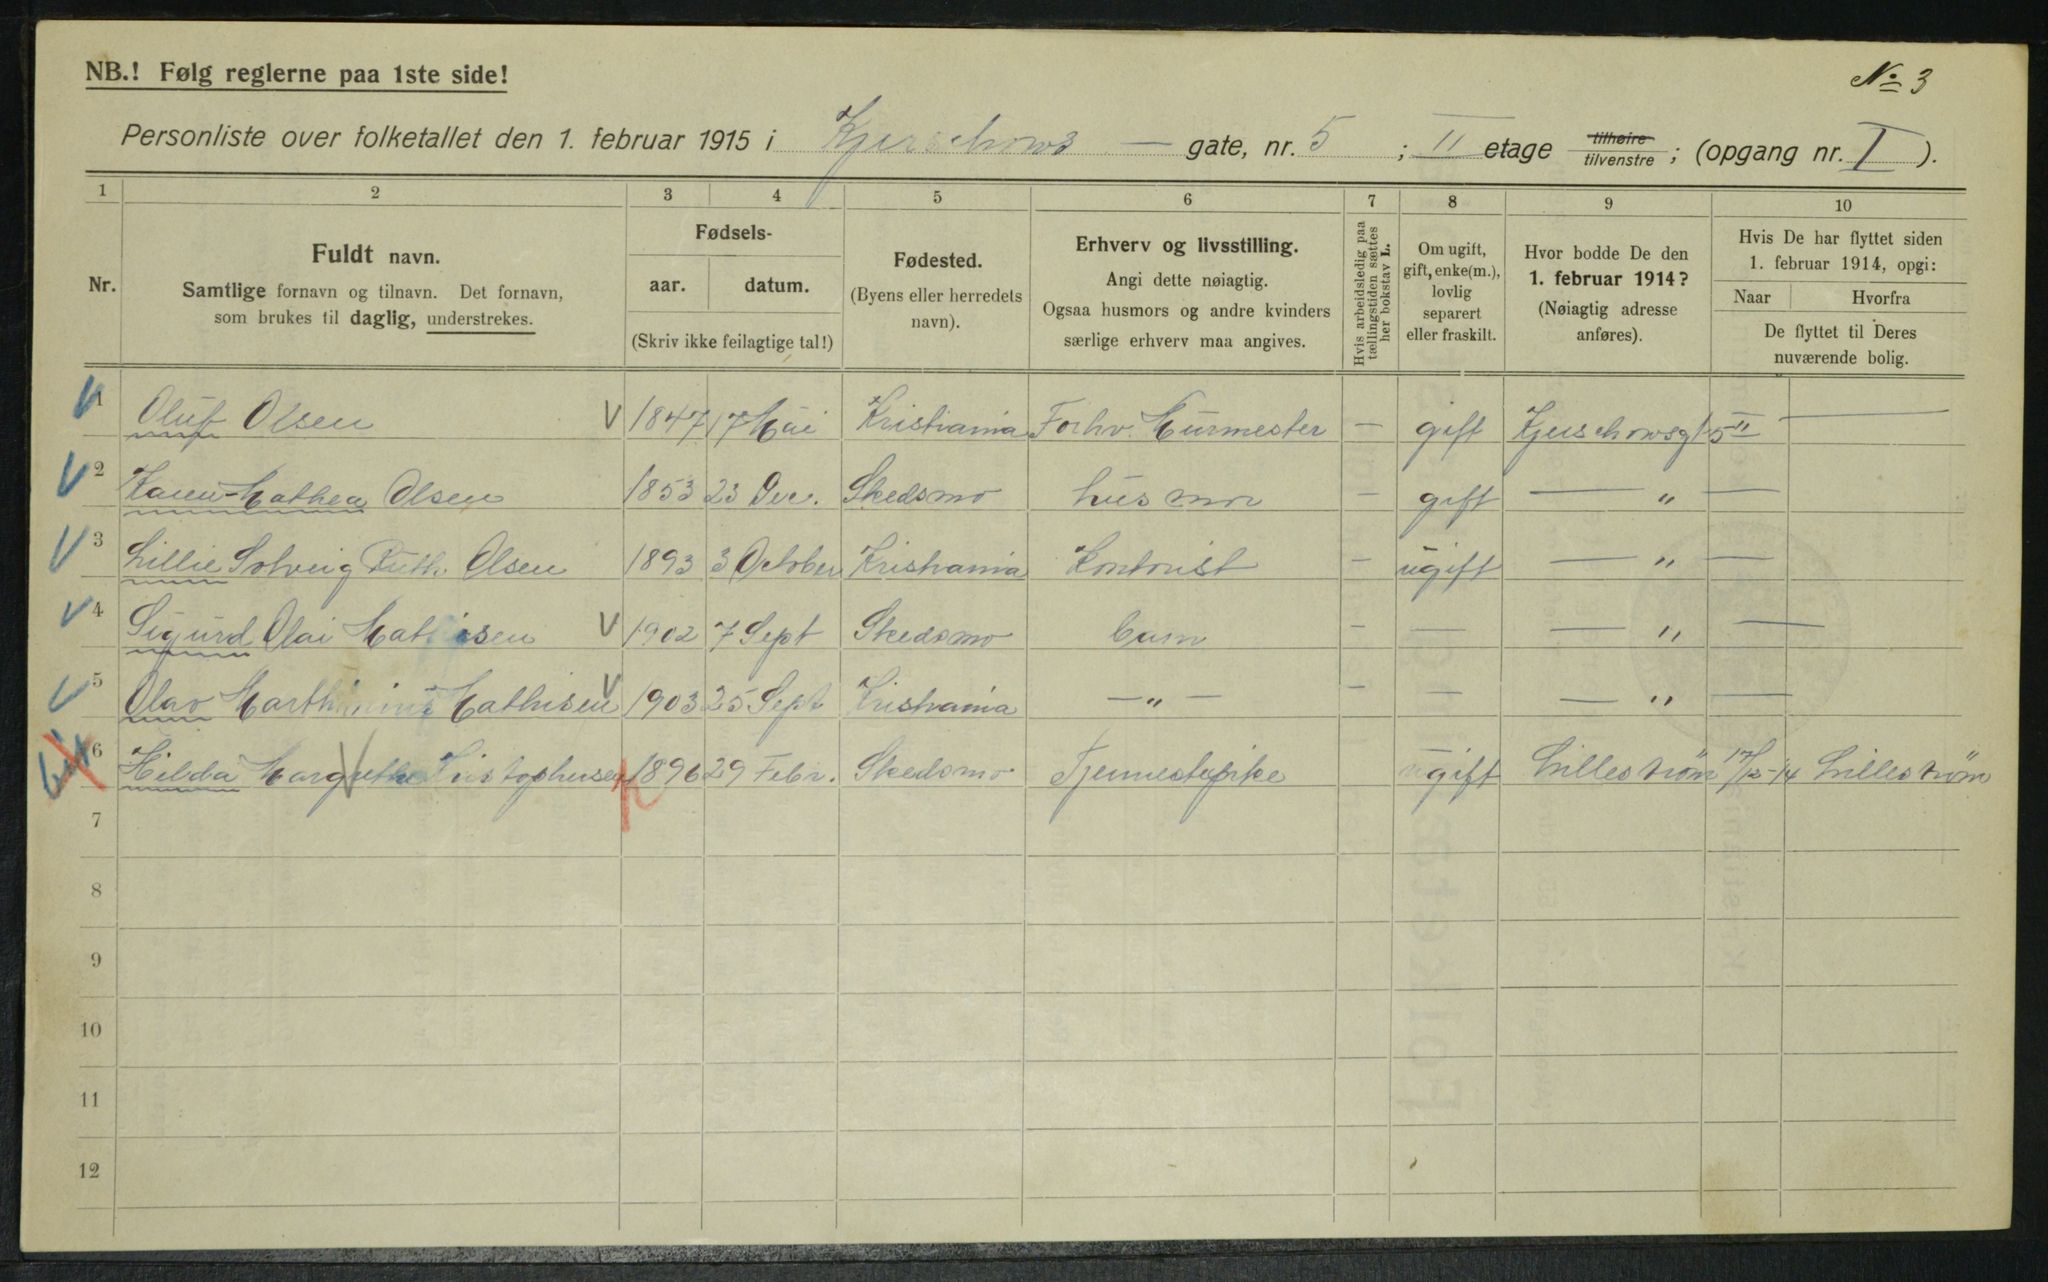 NB.! Følg reglerne paa 1ste side!
No 3
Personliste over folketallet den 1. februar 1915 i Kjerschows — gate, nr. 5 ; II etage tilhøire tilvenstre ; (opgang nr. I ).
1 2 3 4 5 6 7 8 9 10
Nr.
Fuldt navn.
Samtlige fornavn og tilnavn. Det fornavn,
som brukes til daglig, understrekes.
Fødsels-
aar. datum.
(Skriv ikke feilagtige tal!)
Fødested.
(Byens eller herredets
navn).
Erhverv og livsstilling.
Angi dette nøiagtig.
Ogsaa husmors og andre kvinders
særlige erhverv maa angives.
Hvis arbeidsledig paa
tællingstiden sættes
her bokstav L.
Om ugift,
gift, enke(m.),
lovlig
separert
eller fraskilt.
Hvor bodde De den
1. februar 1914?
(Nøiagtig adresse
anføres).
Hvis De har flyttet siden
1. februar 1914, opgi:
Naar Hvorfra
De flyttet til Deres
nuværende bolig.
1 Oluf Olsen 1847 17 Mai Kristiania Forhv. Murmester — gift Kjerschowsgt 5 II —
2 Karen-Mathea Olsen 1853 23 Dec. Skedsmo husmor — gift — " —
3 Lillie Solveig Ruth Olsen 1893 3 October Kristiania Kontorist — ugift — " —
4 Sigurd Olai Mathisen 1902 7 Sept Skedsmo barn — — — " —
5 Olav Marthinius Mathisen 1903 25 Sept Kristiania — " — — — — " —
6 Hilda Margrethe Kristophersen 1896 29 Febr. Skedsmo Tjenestepike ugift Lillestrøm 17/12-14 Lillestrøm
7
8
9
10
11
12